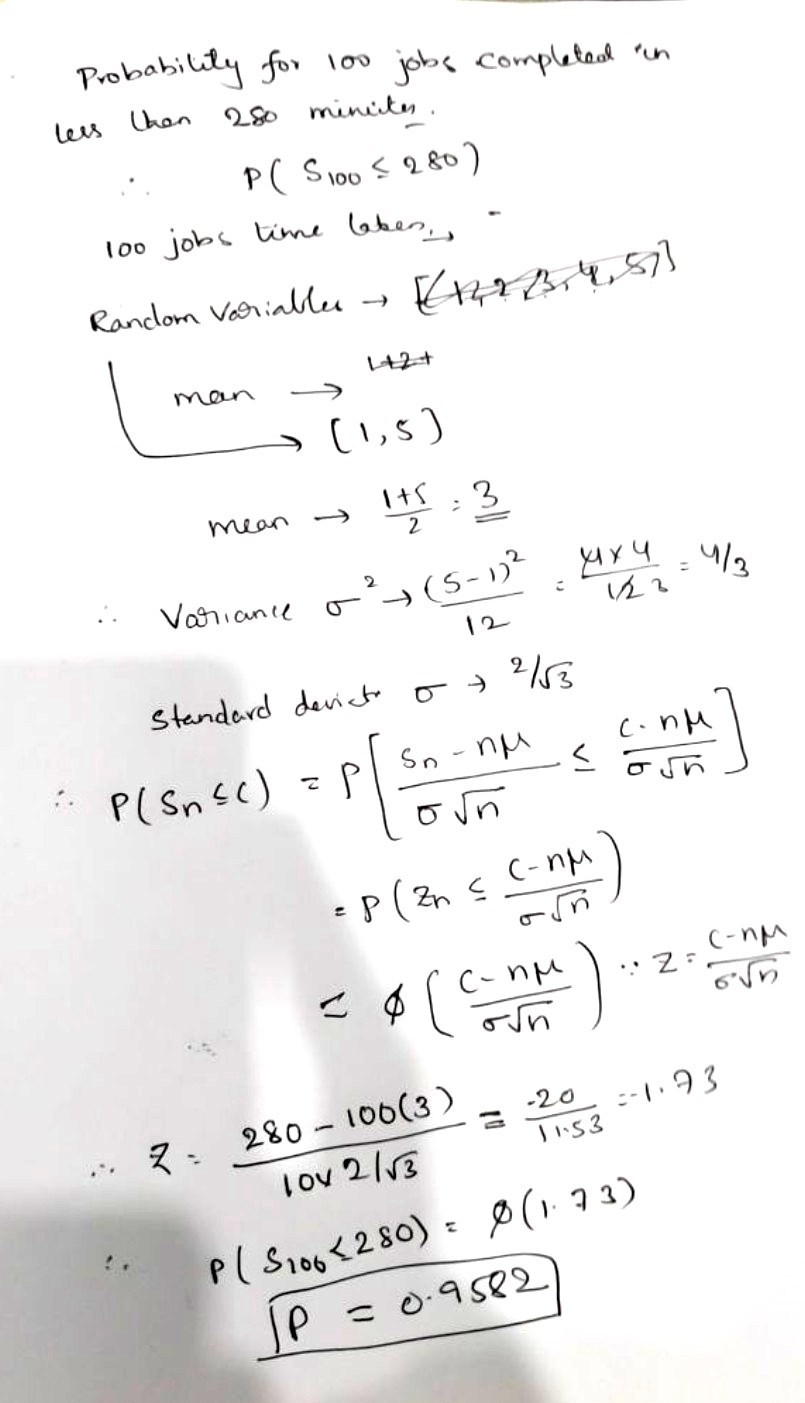 Probability for 100 jobs completed in
less than 280 minutes.
∴ P( S100 ≤ 280)
100 jobs time taken,
Random Variables →
man → 1+2+
→ (1,5)
mean → 1+5/2 = 3
∴ Variance σ² → (5-1)²/12 = 4x4/12 3 = 4/3
Standard deviat σ → 2/√3
∴ P(Sn ≤ C) = P[ Sn - nμ/σ√n ≤ C - nμ/σ√n ]
= P( Zn ≤ C-nμ/σ√n )
= φ( C-nμ/σ√n ) ∵ Z = C-nμ/σ√n
∴ Z = 280 - 100(3)/10x 2/√3 = -20/11.53 = -1.73
∴ P( S100 ≤ 280) = φ(1.73)
P = 0.9582